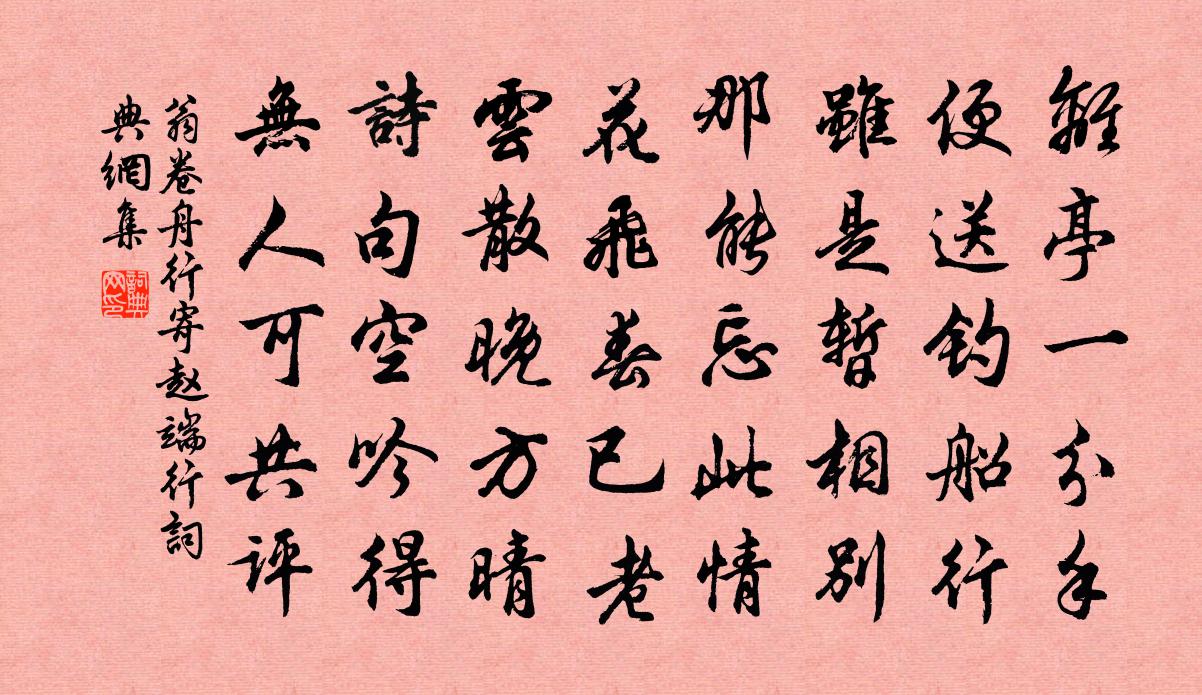 離亭一分手
便送釣船行
雖是暫相別
那能忘此情
花飛春已老
雲散晚方晴
詩句空吟得
無人可共評
翁卷舟行寄赵端行詞
典網集
詞典
网印